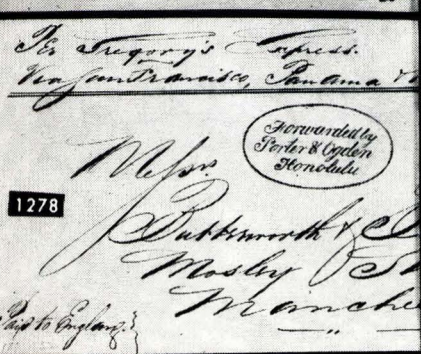 Per Gregory's Express.
Via San Francisco, Panama &
Forwarded by
Porter & Ogden
Honolulu
Messrs.
1278
Butterworth &
Mosley St
Manche
Paid to England.